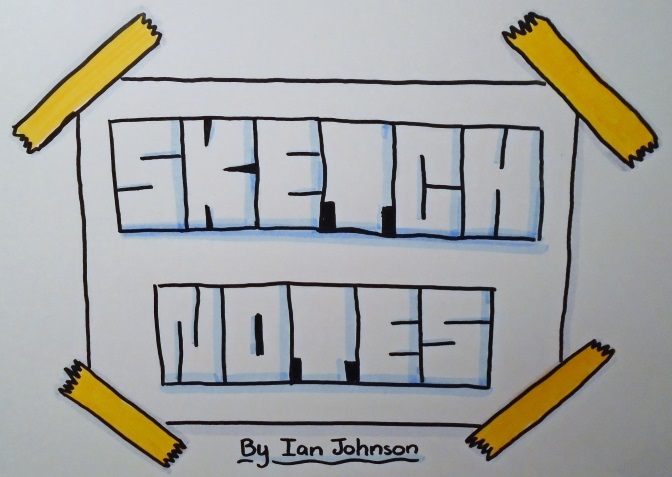 SKETCH
NOTES
By Ian Johnson